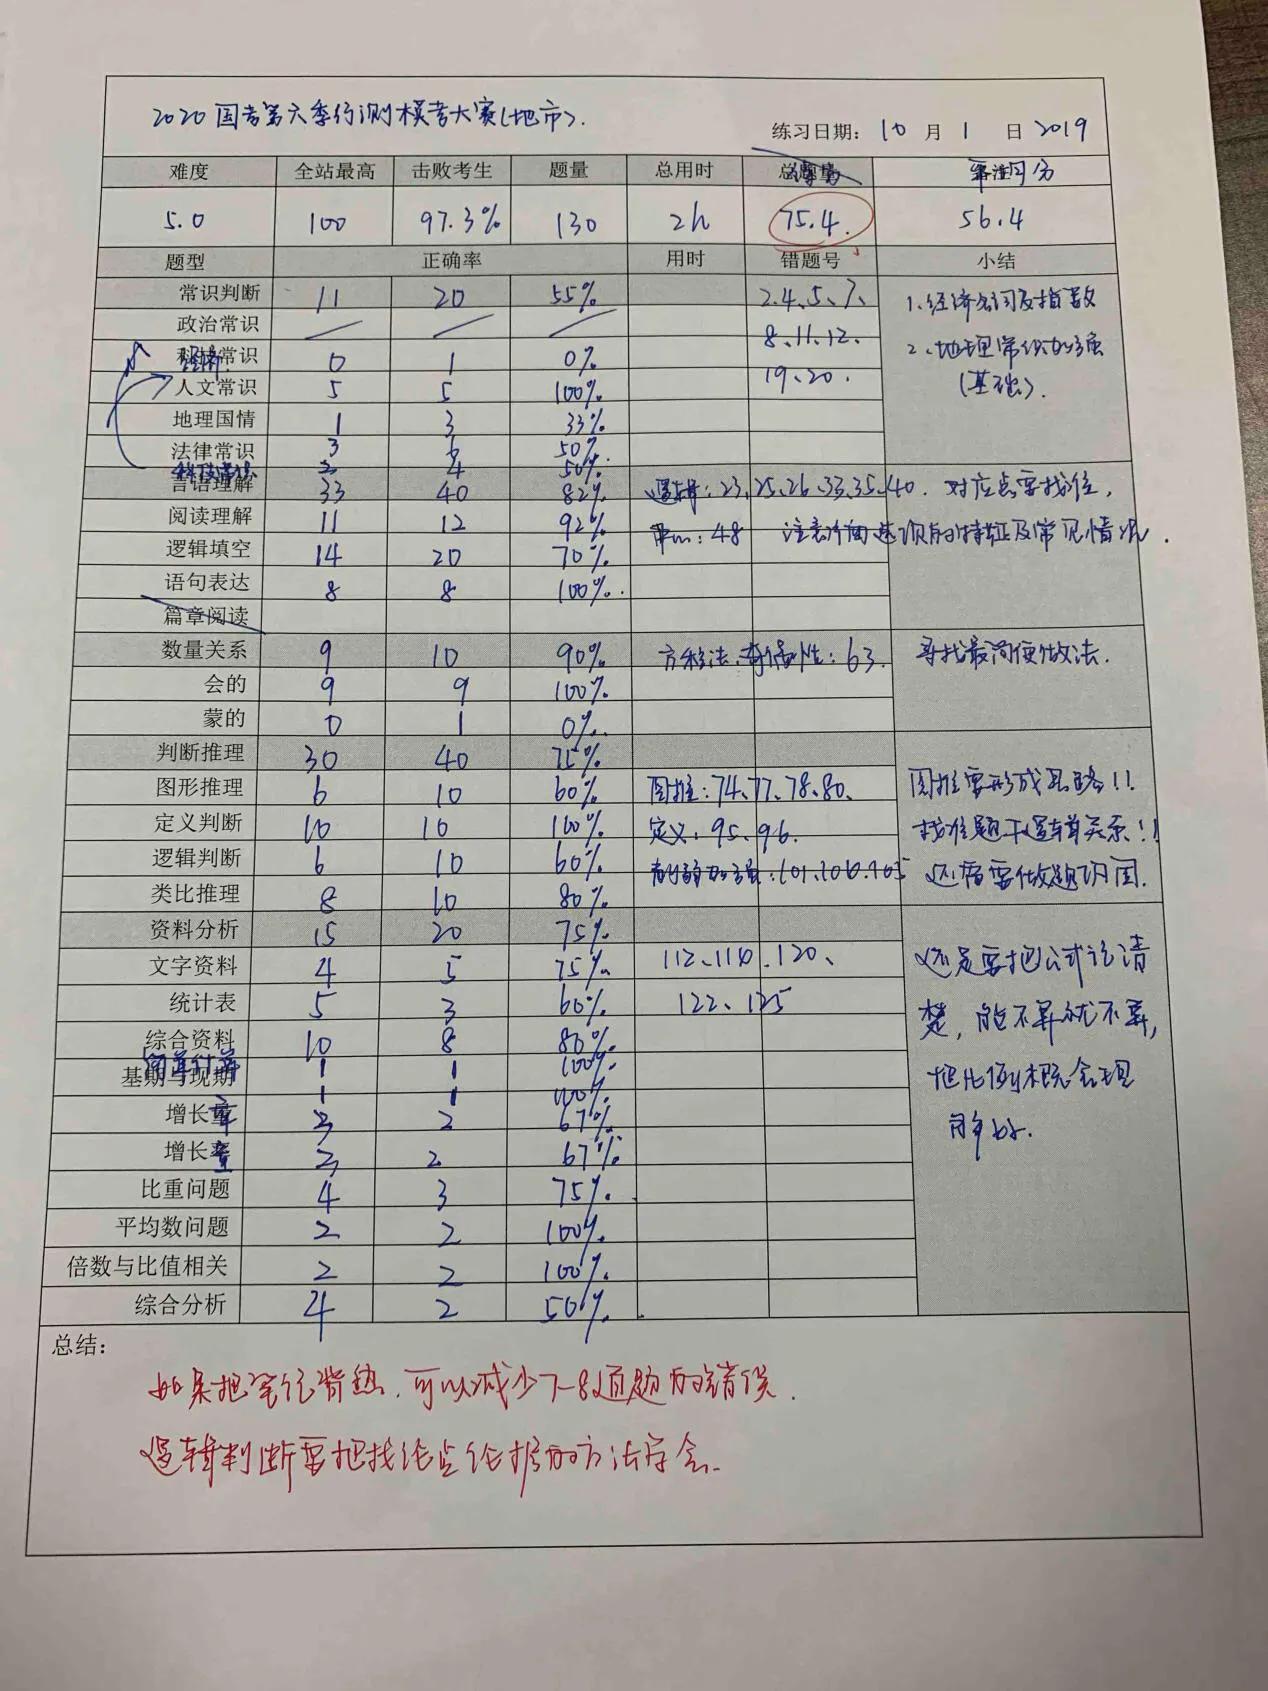 2020国考第六季行测模考大赛(地市).
练习日期: 10 月 1 日 2019
难度 全站最高 击败考生 题量 总用时 平均分
5.0 100 97.3% 130 2h 75.4. 56.4
题型 正确率 用时 错题号 小结
常识判断 11 20 55% 2.4、5、7、 1.经济名词及指数
政治常识 8、11、12、 2、地理常识加强
经济 常识 0 1 0% 19、20. (基础).
人文常识 5 5 100%
地理国情 1 3 33%
法律常识 3 6 50%
科技常识 2 4 50%
言语理解 33 40 82% 逻辑:23、25、26、33、35、40. 对应点要找准,
阅读理解 11 12 92% 中心:48 注意片面选项的特征及常见情况.
逻辑填空 14 20 70%
语句表达 8 8 100%.
篇章阅读
数量关系 9 10 90% 方程法、奇偶性:63. 寻找最简便做法.
会的 9 9 100%
蒙的 0 1 0%.
判断推理 30 40 75%
图形推理 6 10 60% 图推:74、77、78、80、 图推要形成思路!!
定义判断 10 10 100% 定义:95、96. 找准题干逻辑关系!!
逻辑判断 6 10 60% 加强:101、106、105 还需要做题巩固.
类比推理 8 10 80%
资料分析 15 20 75%
文字资料 4 5 75% 112、114.120、 还是要把公式记清
统计表 5 3 60% 122、125 楚,能不算就不算,
综合资料 10 8 80% 把比例概念理
简单计算 1 1 100% 解好.
基期与现期 1 1 100%
增长率 3 2 67%
增长量 3 2 67%
比重问题 4 3 75%.
平均数问题 2 2 100%
倍数与比值相关 2 2 100%
综合分析 4 2 50%
总结:
如果把常识背熟.可以减少7-8道题的错误.
逻辑判断要把找论点论据的方法学会.